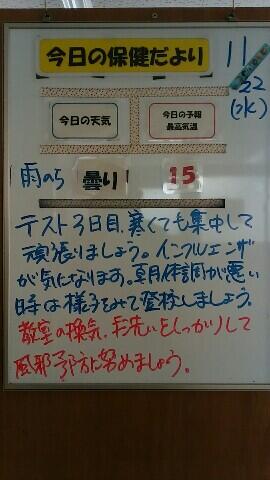 今日の保健だより
11
22
(水)
今日の天気
今日の予報
最高気温
雨のち 曇り 15
テスト3日目、寒くても集中して
頑張りましょう。インフルエンザ
が気になります。朝体調が悪い
時は様子をみて登校しましょう。
教室の換気、手洗いをしっかりして
風邪予防に努めましょう。